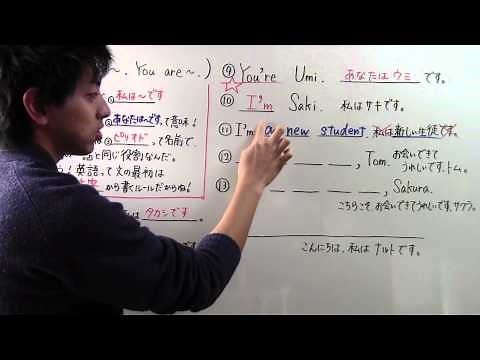 ～. You are ～.)
私は～です
②あなたは～です。って意味!
③ピリオド って名前で、
と同じ役割なんだ。
英語って文の最初は
から書くルールだからね!
タカシです
⑨ You're Umi. あなたはウミ です。
⑩ I'm Saki. 私はサキです。
⑪ I'm a new student. 私は新しい生徒です。
⑫ , Tom. お会いできて
うれしいです、トム。
⑬ , Sakura.
こちらこそ、お会いできてうれしいです、サクラ。
こんにちは、私は ナルトです。